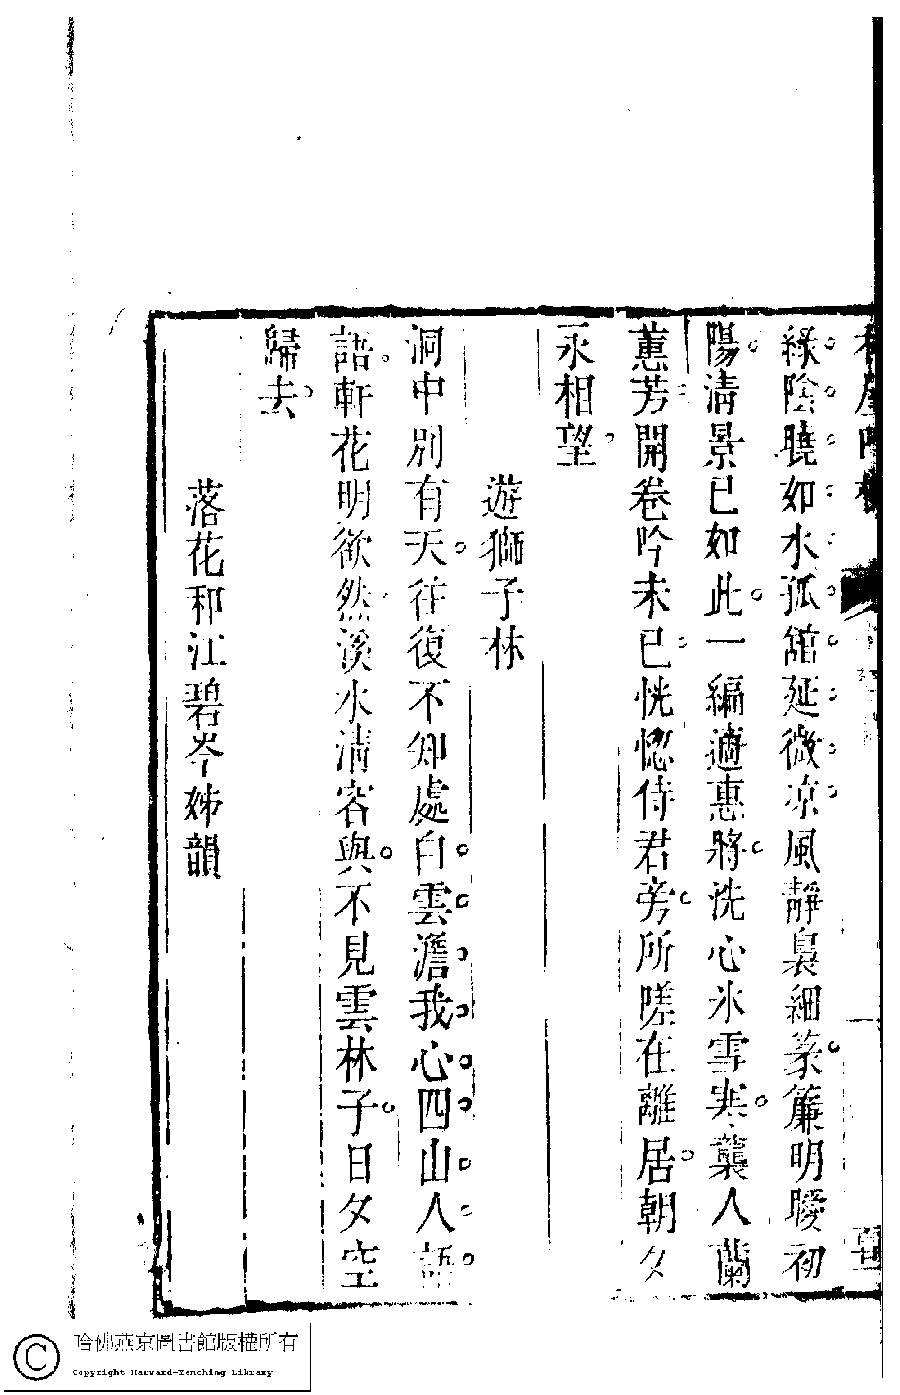 綠陰曉如水孤舘延微凉風靜裊細篆簾明曖初
陽清景已如此一編適惠將洗心氷雪寒襲人蘭
蕙芳開卷吟未已恍惚侍君旁所嗟在離居朝夕
永相望
遊獅子林
洞中別有天往復不知處白雲澹我心四山人語
語軒花明欲然溪水清容與不見雲林子日夕空
歸去
落花和江碧岑姊韻
哈佛燕京圖書館版權所有
Copyright Harvard-Yenching Library